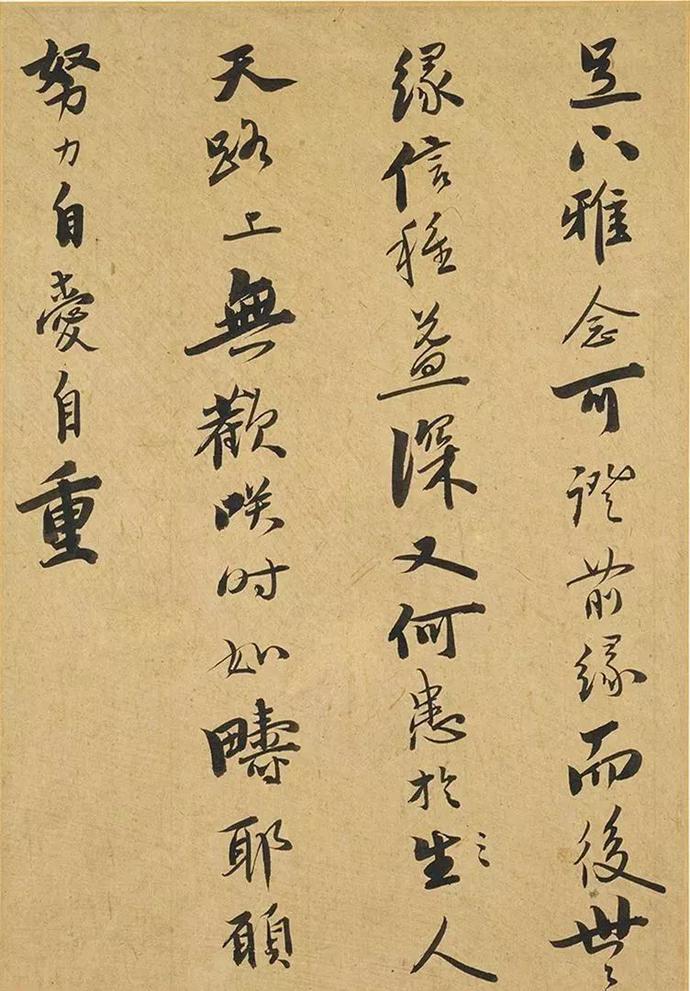 足下雅念可證前緣而後世〻
緣信種益深又何患於生〻人
天路上無歡咲時如疇耶願
努力自愛自重